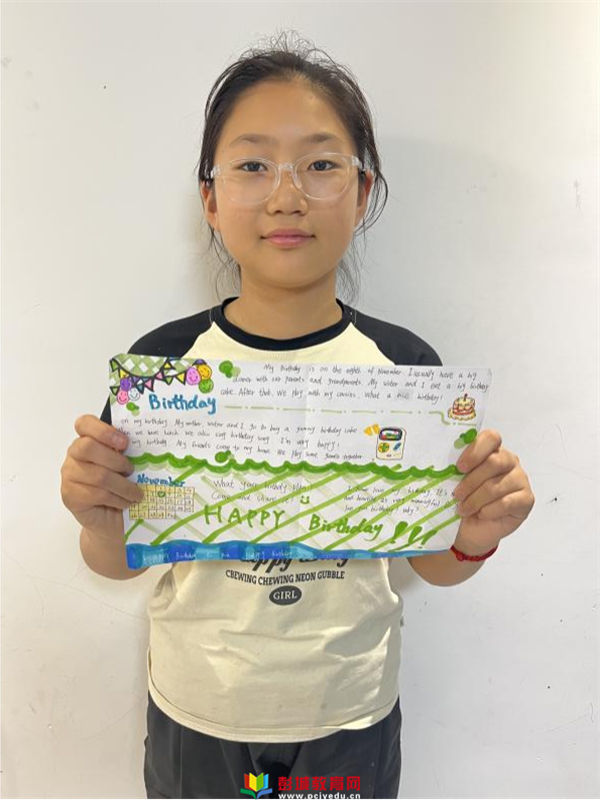 My Birthday is on the eighth of November. I usually have a big
dinner with our parents and grandparents. My sister and I eat a big birthday
cake. After that, we play with my cousins. What a nice birthday!
Birthday
On my birthday, My mother, sister and I go to buy a yummy birthday cake
we have lunch. We also sing birthday song. I'm very happy!
my birthday. My friends come to my home. We play some games together.
November
What your birthday
Come and share it!
HAPPY Birthday!!!
I love my birthday. It's
and because it's very meaningful
birthday? Why?
Happy Birthday to me Happy Birthday
CHEWING CHEWING NEON GUBBLE
GIRL
彭湖教育网
www.pcjyedu.cn